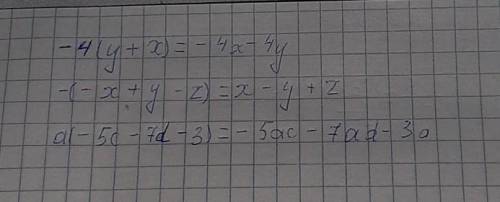 -4(y+x)=-4x-4y
-(-x+y-z)=x-y+z
a(-5c-7d-3)=-5ac-7ad-3a